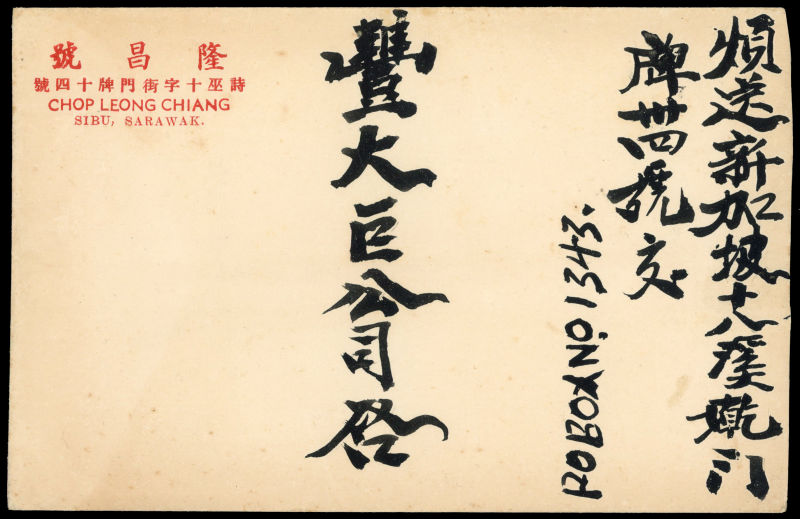 隆昌號
詩巫十字街門牌十四號
CHOP LEONG CHIANG
SIBU, SARAWAK.
煩送新加坡十八溪墘门
牌卅四號交
P.O BOX NO. 1343.
豐大巨公司启